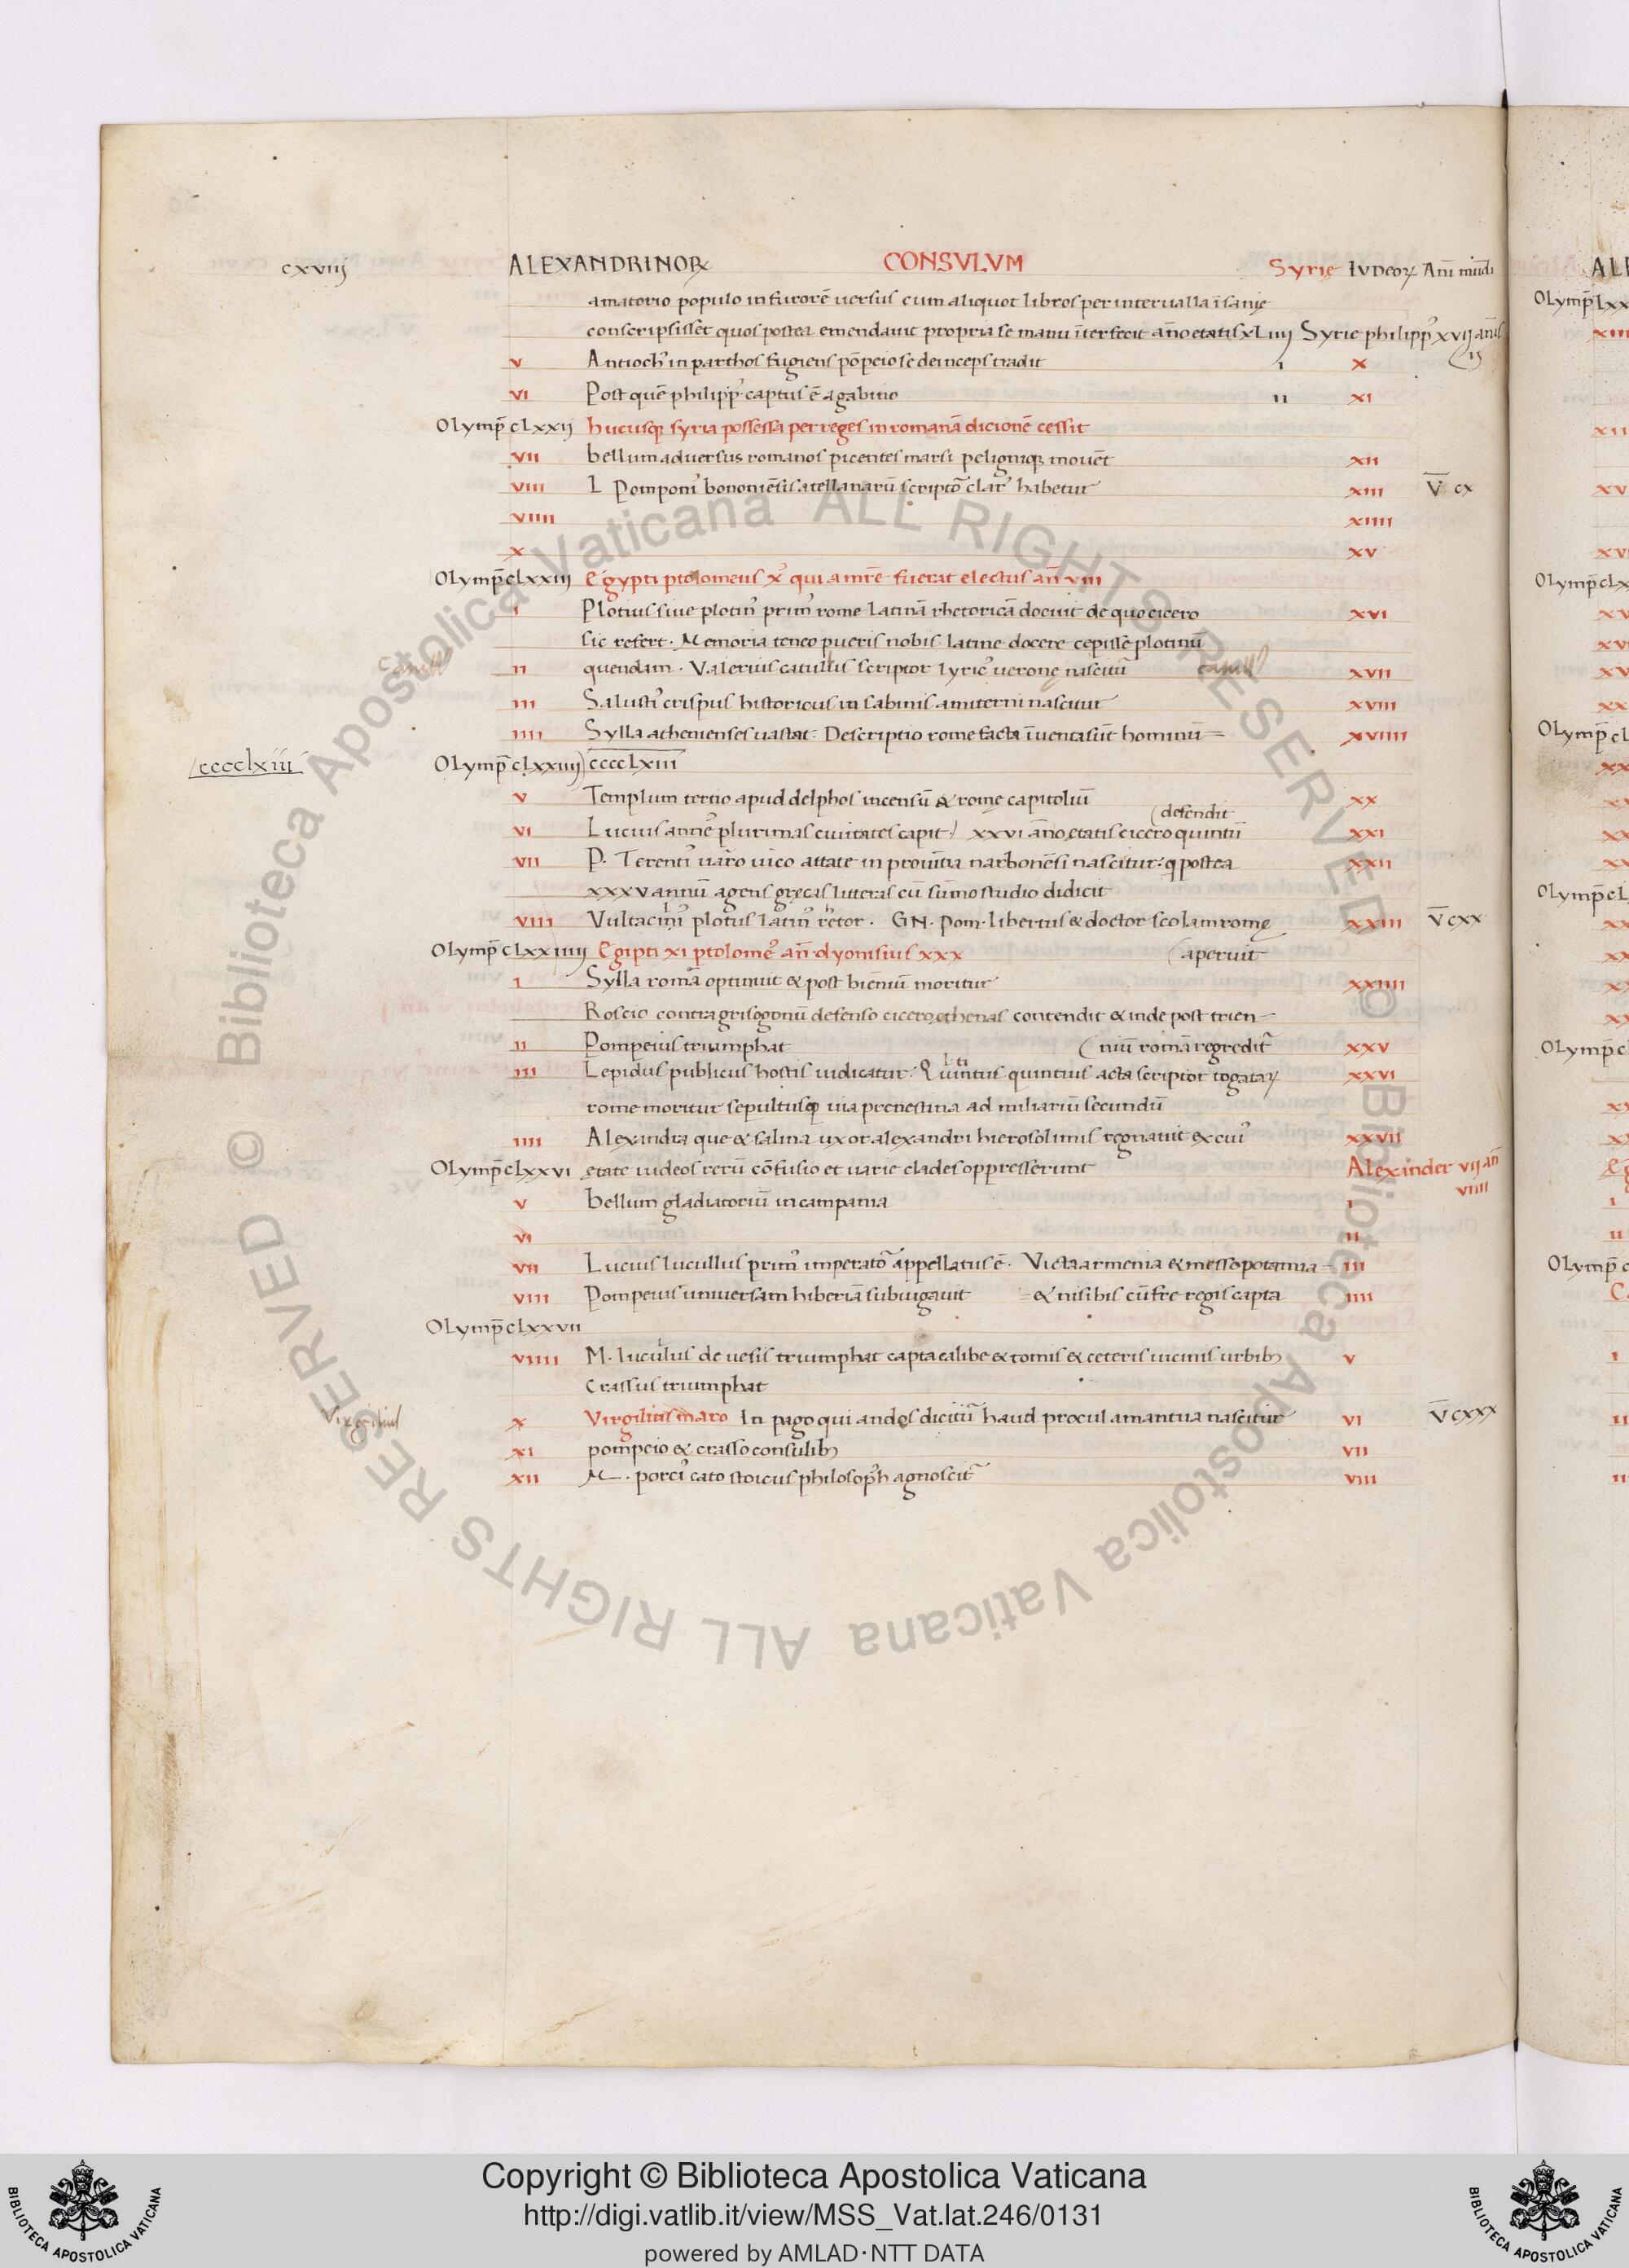 cxviiij ALEXANDRINOꝜ CONSVLVM Syrię IVDeoꝝ Añi mūdi
amatorio populo in furorē uersus cum aliquot libros per interualla īsanię
conscripsisset quos postea emendauit propria se manu īterfecit año etatis xLiiij Syrie philippꝰ xvij annis
ij
v Antiochꝰ in parthos fugiens pōpeio se deinceps tradit i x
vi Post quē philippꝰ captus ē a gabinio ii xi
Olymp̄ cLxxij hucusqꝫ syria possessa per reges in romanā dicionē cessit
vii bellum aduersus romanos picentes marsi peligniqꝫ mouēt xii
viii L Pomponiꝰ bononiēsis atellanarū scriptor̄ clarꝰ habetur xiii V̄ cx
viiii xiiii
x xv
Olymp̄ cLxxiij Egypti ptolomeus xꝰ qui a mr̄e fuerat electus añ viii
i Plotius siue plotinꝰ primꝰ rome latinā rhetoricā docuit de quo cicero xvi
sic refert. Memoria teneo pueris nobis latine docere cepisse plotinū
ii quendam. Valerius catullus scriptor lyricꝰ uerone nascitū xvii
iii Salustiꝰ crispus historicus in sabinis amiterni nascitur xviii
iiii Sylla athenienses uastat. Descriptio rome facta īuenta sūt hominū= xviiii
ccccLxiii Olymp̄ cLxxiiij ccccLxiii
v Templum tertio apud delphos incensū & rome capitoliū xx
defendit
vi Lucius antiꝰ plurimas ciuitates capit xxvi año etatis cicero quintū xxi
vii P. Terentiꝰ uaro uico attace in prouītia narbonēsi nascitur: q postea xxii
xxxv annū agens gręcas litteras cū sūmo studio didicit
viii Vultaciniꝰ plotus latinꝰ retor. GN. Pom. libertus & doctor scolam romę xxiii V̄ cxx
Olymp̄ cLxxiiiij Egipti xi ptolomeꝰ añ dyonisius xxx aperuit
i Sylla romā optinuit & post bieniū moritur xxiiii
Roscio contra grisogonū defenso cicero athenas contendit & inde post trien-
ii Pompeius triumphat niū romā regreditꝰ xxv
iii Lepidus publicus hostis iudicatur. Quintus quintius acta scriptor togataꝝ xxvi
rome moritur sepultusqꝫ uia prenestina ad miliariū secundū
iiii Alexandra que & salina uxor alexandri hierosolimis regnauit ex cuiꝰ xxvii
Olymp̄ cLxxvi ętate iudeos rerū cōfusio et uarie clades oppresserunt Alexander vij añ
viiii
v bellum gladiatoriū in campania i
vi ii
vii Lucius lucullus primꝰ imperator̄ appellatus ē. Victa armenia & messopotamia- iii
viii Pompeius uniuersam hiberiā subiugauit =& nisibis cū fr̄e regis capta iiii
Olymp̄ cLxxvii
viiii M. luculus de uesis triumphat capta calibe & tomis & ceteris uicinis urbibꝫ v
crassus triumphat
Virgilius x Virgilius maro In pago qui andes dicitur̄ haud procul a mantua nascitur vi V̄ cxxx
xi pompeio & crasso consulibꝫ vii
xii M. porciꝰ cato stoicus philosoph̄ agnoscitꝰ viii
Copyright © Biblioteca Apostolica Vaticana
http://digi.vatlib.it/view/MSS_Vat.lat.246/0131
powered by AMLAD·NTT DATA